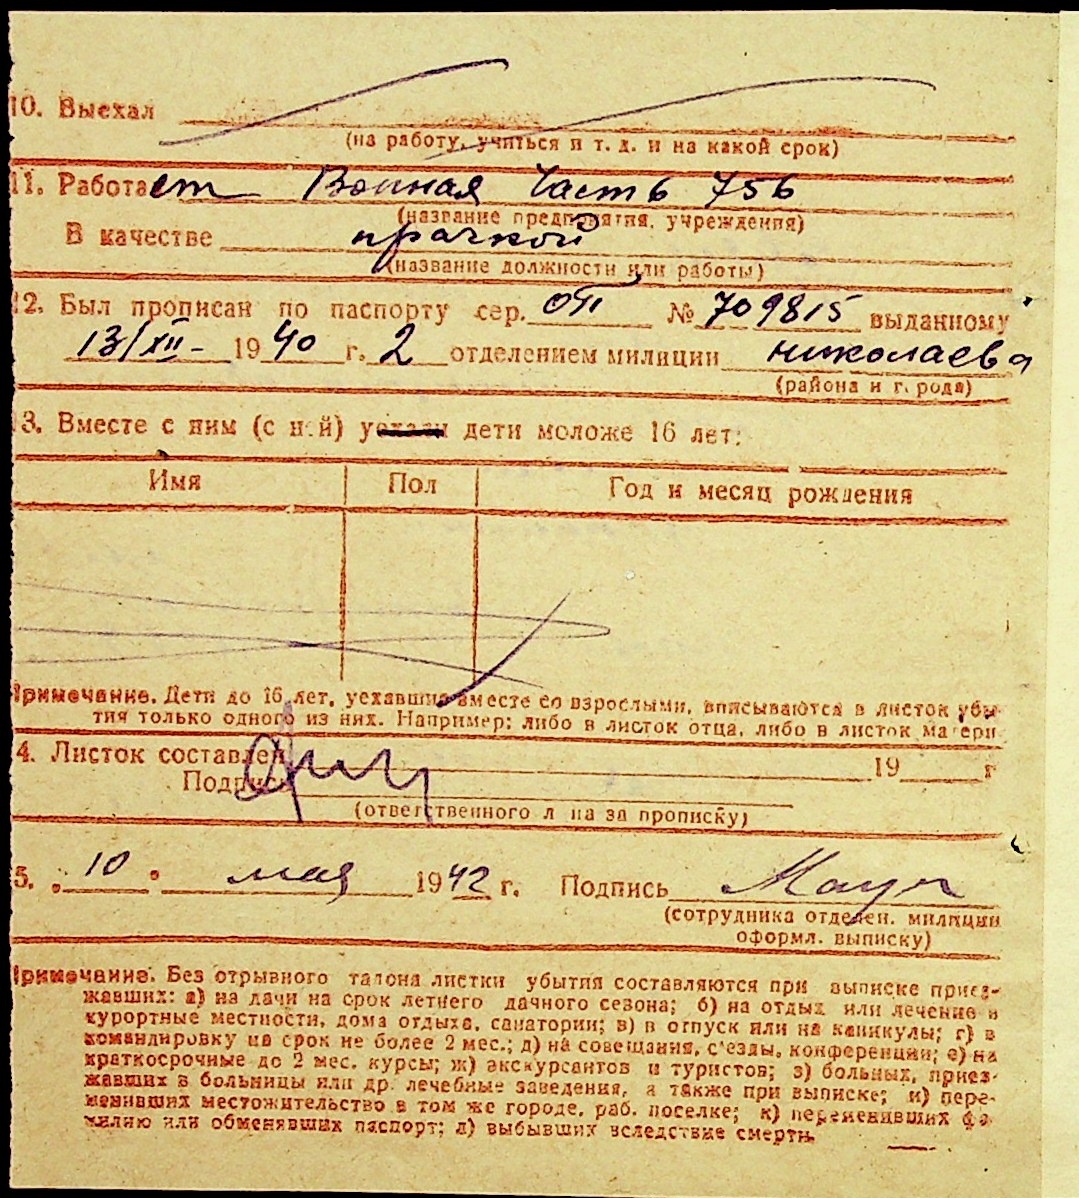 10. Выехал
(на работу, учиться и т. д. и на какой срок)
11. Работает Воиная Часть 756
(название предприятия, учреждения)
В качестве прачкой
(название должности или работы)
12. Был прописан по паспорту сер. № 709815 выданному
13/XII- 1940 г. 2 отделением милиции Николаева
(района и города)
13. Вместе с ним (с ней) уехали дети моложе 16 лет:
Имя Пол Год и месяц рождения
Примечание. Дети до 16 лет, уехавшие вместе со взрослыми, вписываются в листок убы-
тия только одного из них. Например: либо в листок отца, либо в листок матери
4. Листок составлен 19 г
Подпись
(ответственного л на за прописку)
5. „10" мая 1942 г. Подпись
(сотрудника отделен. милиции
оформл. выписку)
Примечание. Без отрывного талона листки убытия составляются при выписке приез-
жавших: а) на дачи на срок летнего дачного сезона; б) на отдых или лечение в
курортные местности, дома отдыха, санатории; в) в отпуск или на каникулы; г) в
командировку на срок не более 2 мес.; д) на совещания, с'езды, конференции; е) на
краткосрочные до 2 мес. курсы; ж) экскурсантов и туристов; з) больных, приез-
жавших в больницы или др. лечебные заведения, а также при выписке; и) пере-
менивших местожительство в том же городе, раб. поселке; к) переменивших фа-
милию или обменявших паспорт; л) выбывших вследствие смерти.